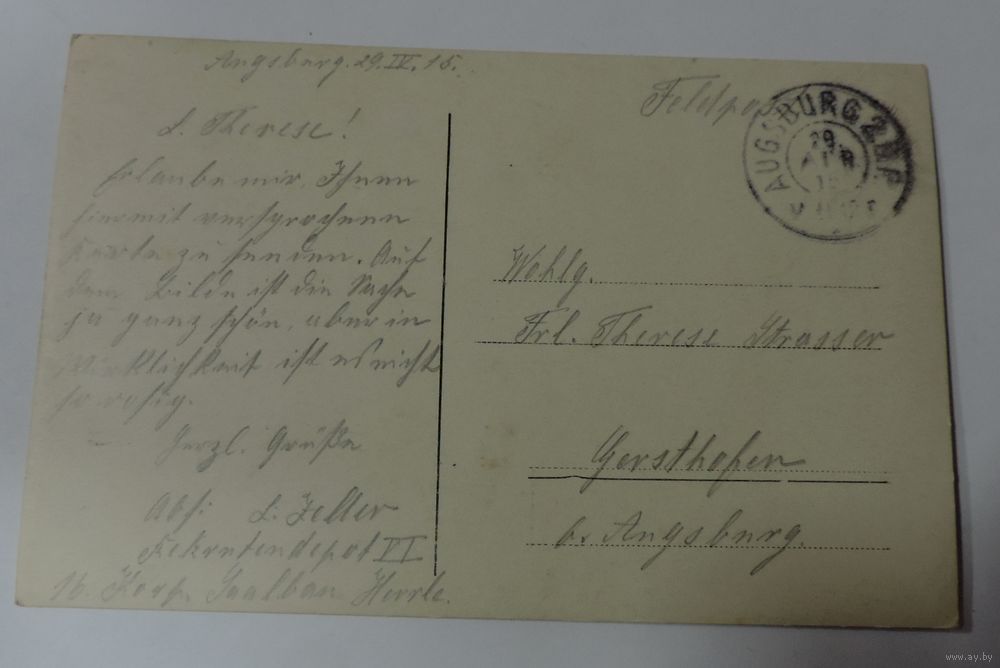 Augsburg. 29.IV.15.
L. Therese!
Erlaube mir, Ihnen
hiermit versprochene
Karte zu senden. Auf
dem Bilde ist die Sache
ja ganz schön, aber in
Wirklichkeit ist es nicht
so rosig.
Herzl. Grüße
Abs: L. Zeller
Rekrutendepot VI
16. Korp. Saalbau Herrle.
Feldpost
AUGSBURG 2
29.
APR
15
Wohlg.
Frl. Therese Strasser
Gersthofen
b. Augsburg.
www.ay.by